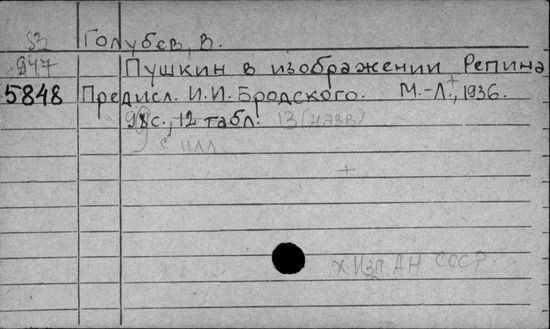 53 Голубев, В.
947 Пушкин в изображении Репина
5848 Предисл. И.И. Бродского. М.-Л., 1936.
98с., 12 табл. 13 (назв)
с илл.
х Изд АН СССР